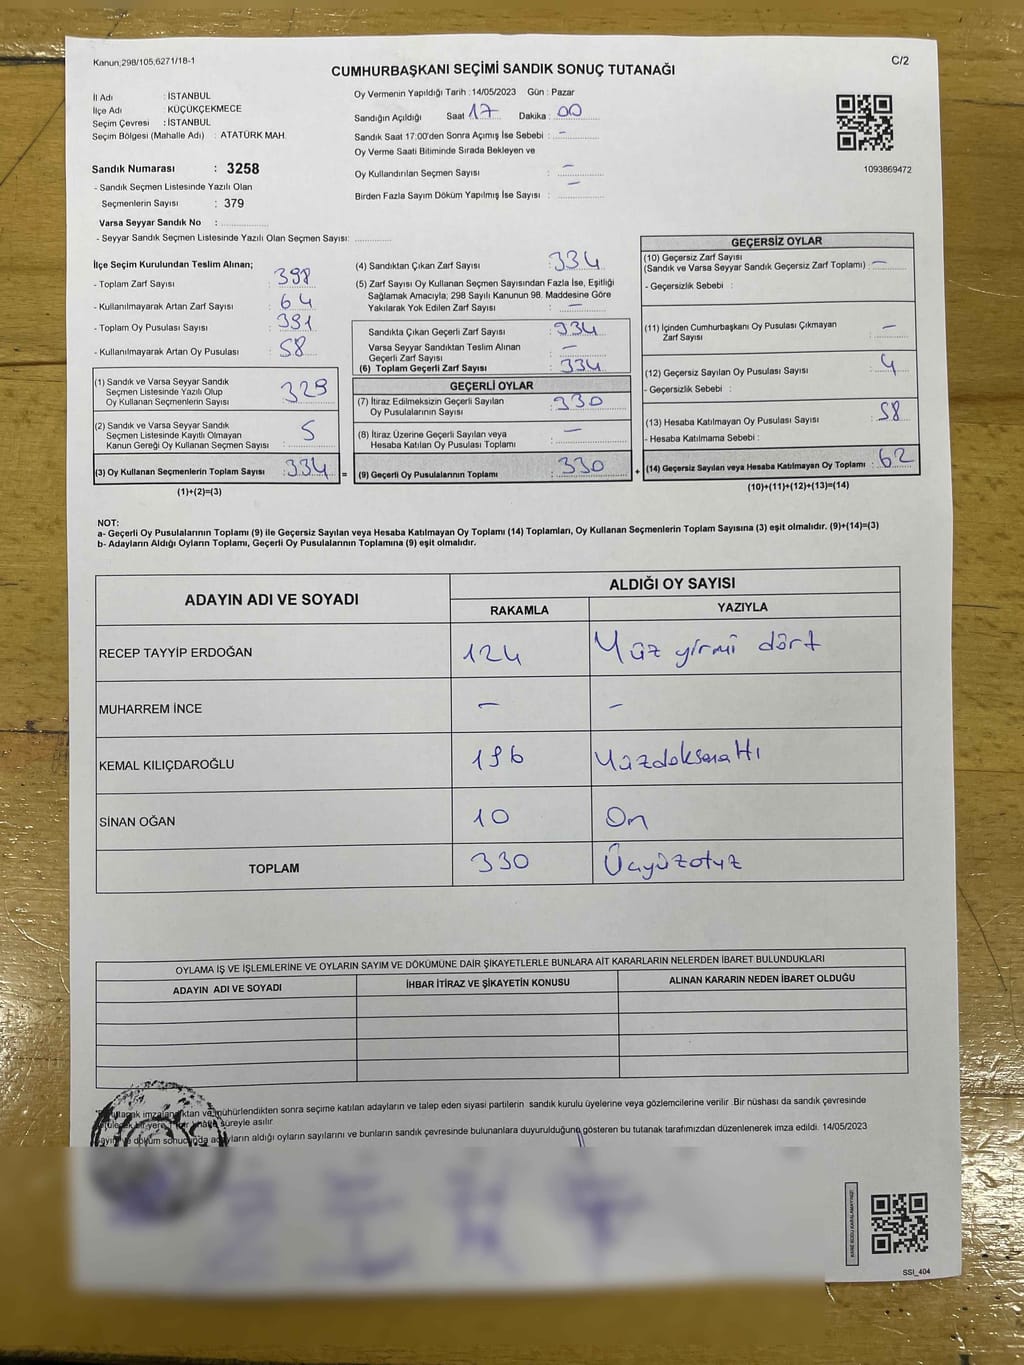 Kanun;298/105;6271/18-1
C/2
CUMHURBAŞKANI SEÇİMİ SANDIK SONUÇ TUTANAĞI
İl Adı : İSTANBUL
İlçe Adı : KÜÇÜKÇEKMECE
Seçim Çevresi : İSTANBUL
Seçim Bölgesi (Mahalle Adı) : ATATÜRK MAH.
Sandık Numarası : 3258
- Sandık Seçmen Listesinde Yazılı Olan
Seçmenlerin Sayısı : 379
Varsa Seyyar Sandık No :
- Seyyar Sandık Seçmen Listesinde Yazılı Olan Seçmen Sayısı:
Oy Vermenin Yapıldığı Tarih :14/05/2023 Gün : Pazar
Sandığın Açıldığı Saat 17 Dakika : 00
Sandık Saat 17:00'den Sonra Açımış İse Sebebi : -
Oy Verme Saati Bitiminde Sırada Bekleyen ve
Oy Kullandırılan Seçmen Sayısı : -
Birden Fazla Sayım Döküm Yapılmış İse Sayısı : -
1093869472
İlçe Seçim Kurulundan Teslim Alınan;
- Toplam Zarf Sayısı : 398
- Kullanılmayarak Artan Zarf Sayısı : 64
- Toplam Oy Pusulası Sayısı : 391
- Kullanılmayarak Artan Oy Pusulası : 58
(1) Sandık ve Varsa Seyyar Sandık
Seçmen Listesinde Yazılı Olup
Oy Kullanan Seçmenlerin Sayısı : 329
(2) Sandık ve Varsa Seyyar Sandık
Seçmen Listesinde Kayıtlı Olmayan
Kanun Gereği Oy Kullanan Seçmen Sayısı : 5
(3) Oy Kullanan Seçmenlerin Toplam Sayısı : 334
(1)+(2)=(3)
(4) Sandıktan Çıkan Zarf Sayısı : 334
(5) Zarf Sayısı Oy Kullanan Seçmen Sayısından Fazla İse, Eşitliği
Sağlamak Amacıyla; 298 Sayılı Kanunun 98. Maddesine Göre
Yakılarak Yok Edilen Zarf Sayısı : -
Sandıkta Çıkan Geçerli Zarf Sayısı : 334
Varsa Seyyar Sandıktan Teslim Alınan
Geçerli Zarf Sayısı : -
(6) Toplam Geçerli Zarf Sayısı : 334
GEÇERLİ OYLAR
(7) İtiraz Edilmeksizin Geçerli Sayılan
Oy Pusulalarının Sayısı : 330
(8) İtiraz Üzerine Geçerli Sayılan veya
Hesaba Katılan Oy Pusulası Toplamı : -
= (9) Geçerli Oy Pusulalarının Toplamı : 330
GEÇERSİZ OYLAR
(10) Geçersiz Zarf Sayısı
(Sandık ve Varsa Seyyar Sandık Geçersiz Zarf Toplamı) : -
- Geçersizlik Sebebi :
(11) İçinden Cumhurbaşkanı Oy Pusulası Çıkmayan
Zarf Sayısı : -
(12) Geçersiz Sayılan Oy Pusulası Sayısı : 4
- Geçersizlik Sebebi :
(13) Hesaba Katılmayan Oy Pusulası Sayısı : 58
- Hesaba Katılmama Sebebi :
+ (14) Geçersiz Sayılan veya Hesaba Katılmayan Oy Toplamı : 62
(10)+(11)+(12)+(13)=(14)
NOT:
a- Geçerli Oy Pusulalarının Toplamı (9) ile Geçersiz Sayılan veya Hesaba Katılmayan Oy Toplamı (14) Toplamları, Oy Kullanan Seçmenlerin Toplam Sayısına (3) eşit olmalıdır. (9)+(14)=(3)
b- Adayların Aldığı Oyların Toplamı, Geçerli Oy Pusulalarının Toplamına (9) eşit olmalıdır.
ADAYIN ADI VE SOYADI
ALDIĞI OY SAYISI
RAKAMLA YAZIYLA
RECEP TAYYİP ERDOĞAN 124 Yüz yirmi dört
MUHARREM İNCE - -
KEMAL KILIÇDAROĞLU 196 Yüzdoksanaltı
SİNAN OĞAN 10 On
TOPLAM 330 Üçyüzotuz
OYLAMA İŞ VE İŞLEMLERİNE VE OYLARIN SAYIM VE DÖKÜMÜNE DAİR ŞİKAYETLERLE BUNLARA AİT KARARLARIN NELERDEN İBARET BULUNDUKLARI
ADAYIN ADI VE SOYADI İHBAR İTİRAZ VE ŞİKAYETİN KONUSU ALINAN KARARIN NEDEN İBARET OLDUĞU
mühürlendikten sonra seçime katılan adayların ve talep eden siyasi partilerin sandık kurulu üyelerine veya gözlemcilerine verilir .Bir nüshası da sandık çevresinde
süreyle asılır.
aldığı oyların sayılarını ve bunların sandık çevresinde bulunanlara duyurulduğunu gösteren bu tutanak tarafımızdan düzenlenerek imza edildi. 14/05/2023
SSI_404